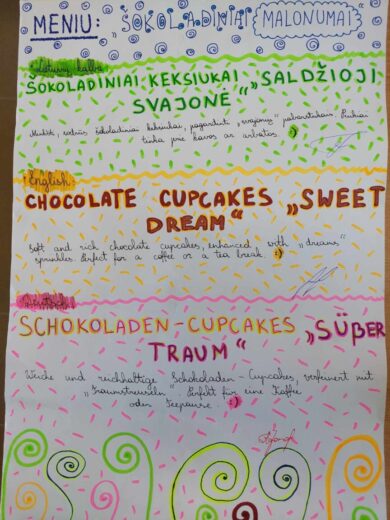 MENIU: ŠOKOLADINIAI „MALONUMAI“
Lietuvių kalba
ŠOKOLADINIAI KEKSIUKAI „SALDŽIOJI
SVAJONĖ“
Minkšti, sodrūs šokoladiniai keksiukai, pagardinti „svajonių“ pabarstukais. Puikiai
tinka prie kavos ar arbatos. :)
English
CHOCOLATE CUPCAKES „SWEET
DREAM“
Soft and rich chocolate cupcakes, enhanced with „dreams“
sprinkles. Perfect for a coffee or a tea break. :)
Deutsch
SCHOKOLADEN-CUPCAKES „SÜßER
TRAUM“
Weiche und reichhaltige Schokoladen-Cupcakes, verfeinert mit
„Traumstreuseln“. Perfekt für eine Kaffee
oder Teepause. :)